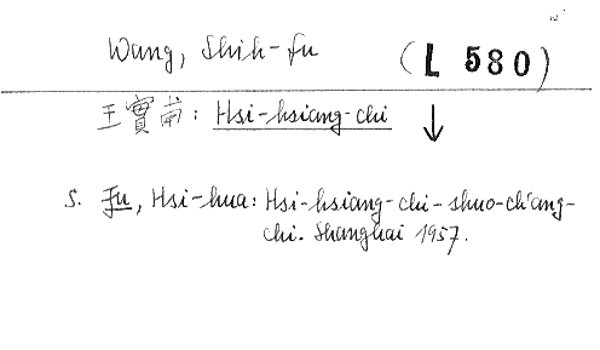 Wang, Shih-fu (L 580)
王實甫: Hsi-hsiang-chi ↓
S. Fu, Hsi-hua: Hsi-hsiang-chi-shuo-ch'ang-
chi. Shanghai 1957.